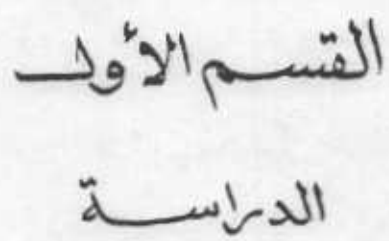 القسم الأول
الدراسة